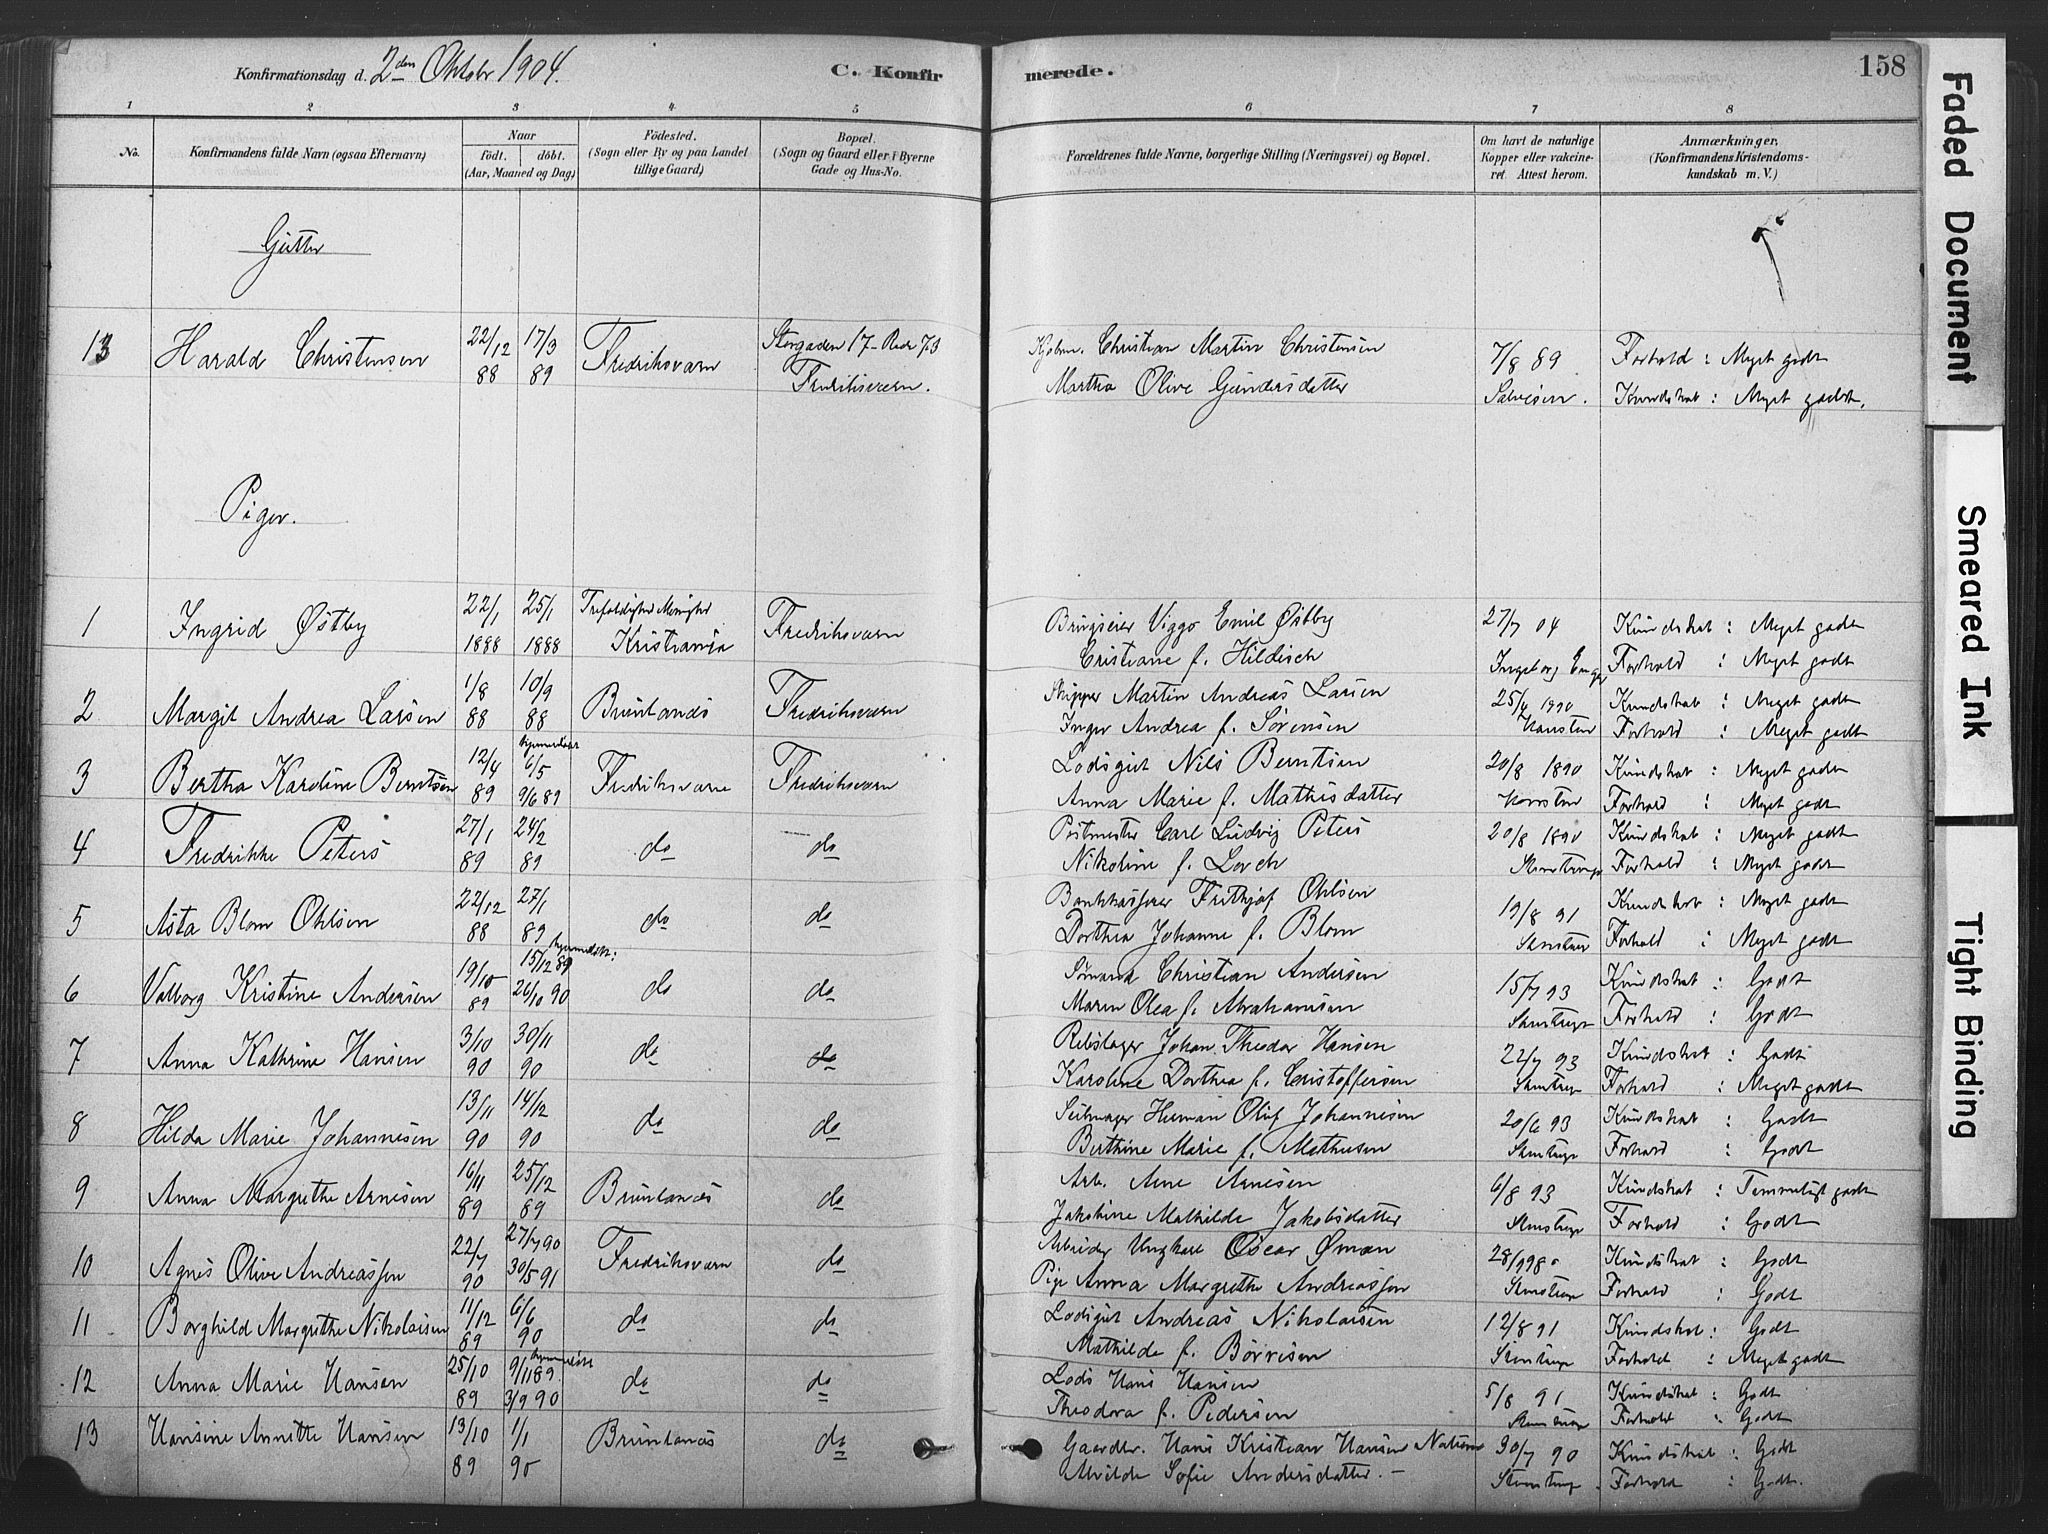 Konfirmationsdag d. 2den Oktober 1904.
C. Konfirmerede.
158
1 2 3 4 5 6 7 8
No.
Konfirmandens fulde Navn (ogsaa Efternavn)
Naar
födt. döbt.
(Aar, Maaned og Dag)
Födested.
(Sogn eller By og paa Landet
tillige Gaard)
Bopæl.
(Sogn og Gaard eller i Byerne
Gade og Hus-No.
Forældrenes fulde Navne, borgerlige Stilling (Næringsvei) og Bopæl.
Om havt de naturlige
Kopper eller vakcine-
ret. Attest herom.
Anmærkninger.
(Konfirmandens Kristendoms-
kundskab m. V.)
Gutter
13 Harald Christensen 22/12 88 17/3 89 Fredriksværn Storgaden 17 - Rede 73 Fredriksværn.
Kjøbm. Christian Martin Christensen 7/8 89 Forhold : Meget godt
Martha Olive Gundersdatter Salvesen. Kundskab : Meget godt.
Piger.
1 Ingrid Østby 22/1 1888 25/1 1888 Trefoldigheds Menighed Kristiania Fredriksværn
Viggo Emil Østby 27/7 04 Kundskab : Meget godt
Cristiane f. Hildisch Ingeborg Forhold : Meget godt
2 Margit Andrea Larsen 1/8 88 10/9 88 Brunlanes Fredriksværn
Skipper Martin Andreas Larsen 25/4 1890 Kundskab : Meget godt
Inger Andrea f. Sørensen Forhold : Meget godt
3 Bertha Karoline Berntsen 12/4 89 hjemmedøbt 6/5 9/6 89 Fredriksværn Fredriksværn
Lodsgut Nils Berntsen 20/8 1890 Kundskab : Meget godt
Anna Marie f. Mathisdatter Forhold : Meget godt
4 Fredrikke Peters 27/1 89 24/2 89 do do
Postmester Carl Ludvig Peters 20/8 1890 Kundskab : Meget godt
Nikoline f. Lorch Stenstrup Forhold : Meget godt
5 Asta Blom Ohlsen 22/12 88 27/1 89 do do
Bankkasserer Frithjof Ohlsen 19/8 91 Kundskab : Meget godt
Dorthea Johanne f. Blom Stenstrup Forhold : Meget godt
6 Valborg Kristine Andersen 19/10 89 hjemmedøbt: 15/12 89 26/10 90 do do
Sømand Christian Andersen 15/7 93 Kundskab : Godt
Maren Olea f. Abrahamsen Stenstrup Forhold : Godt
7 Anna Kathrine Hansen 3/10 90 30/11 90 do do
Rebslager Johan Theodor Hansen 22/7 93 Kundskab : Godt
Karoline Dorthea f. Cristoffersen Stenstrup Forhold : Meget godt
8 Hilda Marie Johannesen 13/11 90 14/12 90 do do
Seilmager Herman Oluf Johannesen 20/6 93 Kundskab : Godt
Berthine Marie f. Mathisen Stenstrup Forhold : Godt
9 Anna Margrethe Arnesen 16/11 89 25/12 89 Brunlanes do
Arb. Arne Arnesen 6/8 93 Kundskab : Temmeligt godt
Jakobine Mathilde Jakobsdatter Stenstrup Forhold : Godt
10 Agnes Olive Andreassen 22/7 90 27/7 90 30/5 91 Fredriksværn do
Arbeider Ungkarl Oscar Øman Kundskab : Godt
Pige Anna Margrethe Andreassen Stenstrup Forhold : Godt
11 Borghild Margrethe Nikolaisen 11/12 89 6/6 90 do do
Lodsgut Andreas Nikolaisen 12/8 91 Kundskab : Godt
Mathilde f. Børresen Stenstrup Forhold : Meget godt
12 Anna Marie Hansen 25/10 89 9/11 89. hjemmedøbt 3/9 90 do do
Lods Hans Hansen 5/8 91 Kundskab : Godt
Theodora f. Pedersen Stenstrup Forhold : Godt
13 Hansine Annette Hansen 13/10 89 1/1 90 Brunlanes do
Gaardbr. Hans Kristian Hansen 30/7 90 Kundskab : Godt
Alvilde Sofie Andersdatter. Stenstrup. Forhold : Godt.
Faded Document
Smeared Ink
Tight Binding